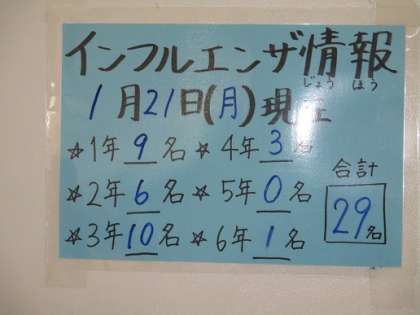 インフルエンザ情報
じょう ほう
1月21日(月)現在
☆1年 9名 ☆4年 3名
合計
☆2年 6名 ☆5年 0名
29名
☆3年 10名 ☆6年 1名